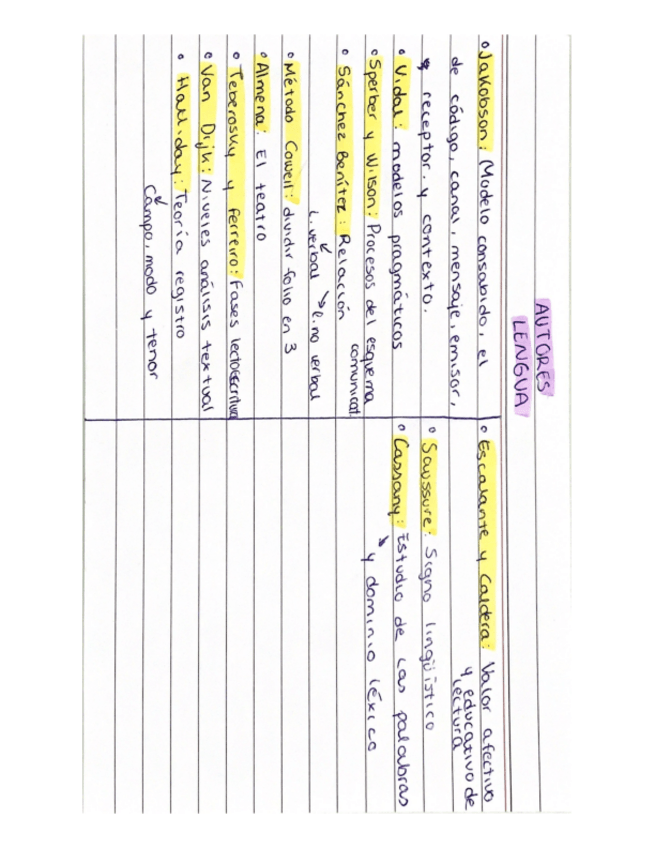 AUTORES
LENGUA
• Jakobson: (Modelo consabido, el
de código, canal, mensaje, emisor,
y receptor. y contexto.
• Vidal: modelos pragmáticos
• Sperber y Wilson: Procesos del esquema
comunicat.
• Sánchez Benítez: Relación
l. verbal l. no verbal
• Método Cowell: dividir folio en 3
• Almena: El teatro
• Teberosky y Ferreiro: Fases lectoescritura
• Van Dijk: Niveles análisis textual
• Halliday: Teoría registro
Campo, modo y tenor
• Escalante y Caldera: Valor afectivo
y educativo de
lectura
• Saussure: Signo lingüístico
• Cassany: Estudio de las palabras
y dominio léxico